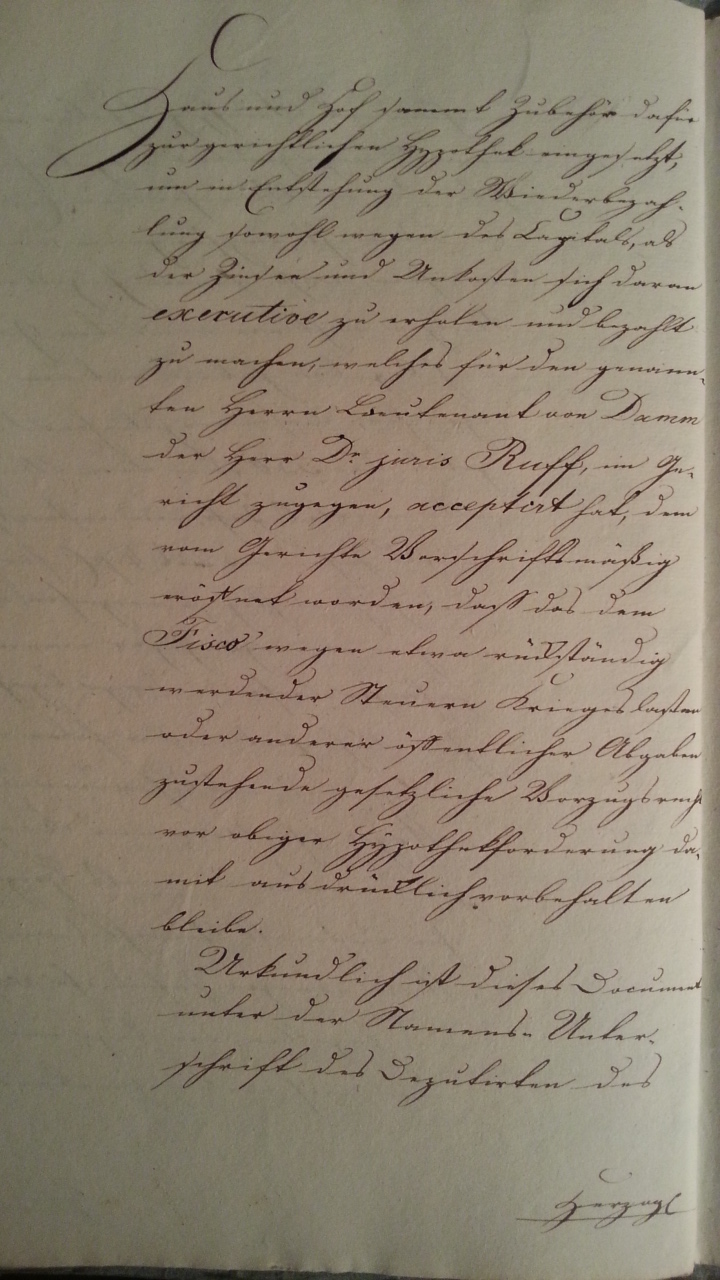 Haus und Hof sammt Zubehör dafür
zur gerichtlichen Hypothek eingesetzt,
um in Entstehung der Wiederbezah-
lung sowohl wegen des Capitals, als
der Zinsen und Unkosten sich daran
executive zu erholen und bezahlt
zu machen, welches für den genann-
ten Herrn Lieutenant von Damm
der Herr Dr. juris Ruff, im Ge-
richt zugegen, acceptirt hat, dem
vom Gerichte Vorschriftsmäßig
eröffnet worden, daß das dem
Fisco wegen etwa rückständig
werdender Steuern Kriegeslasten
oder anderer öffentlicher Abgaben
zustehende gesetzliche Vorzugsrecht
vor obiger Hypothekforderung da-
mit ausdrücklich vorbehalten
bleibe.
Urkundlich ist dieses Document
unter der Namens-Unter-
schrift des Deputirten des
Herzogl